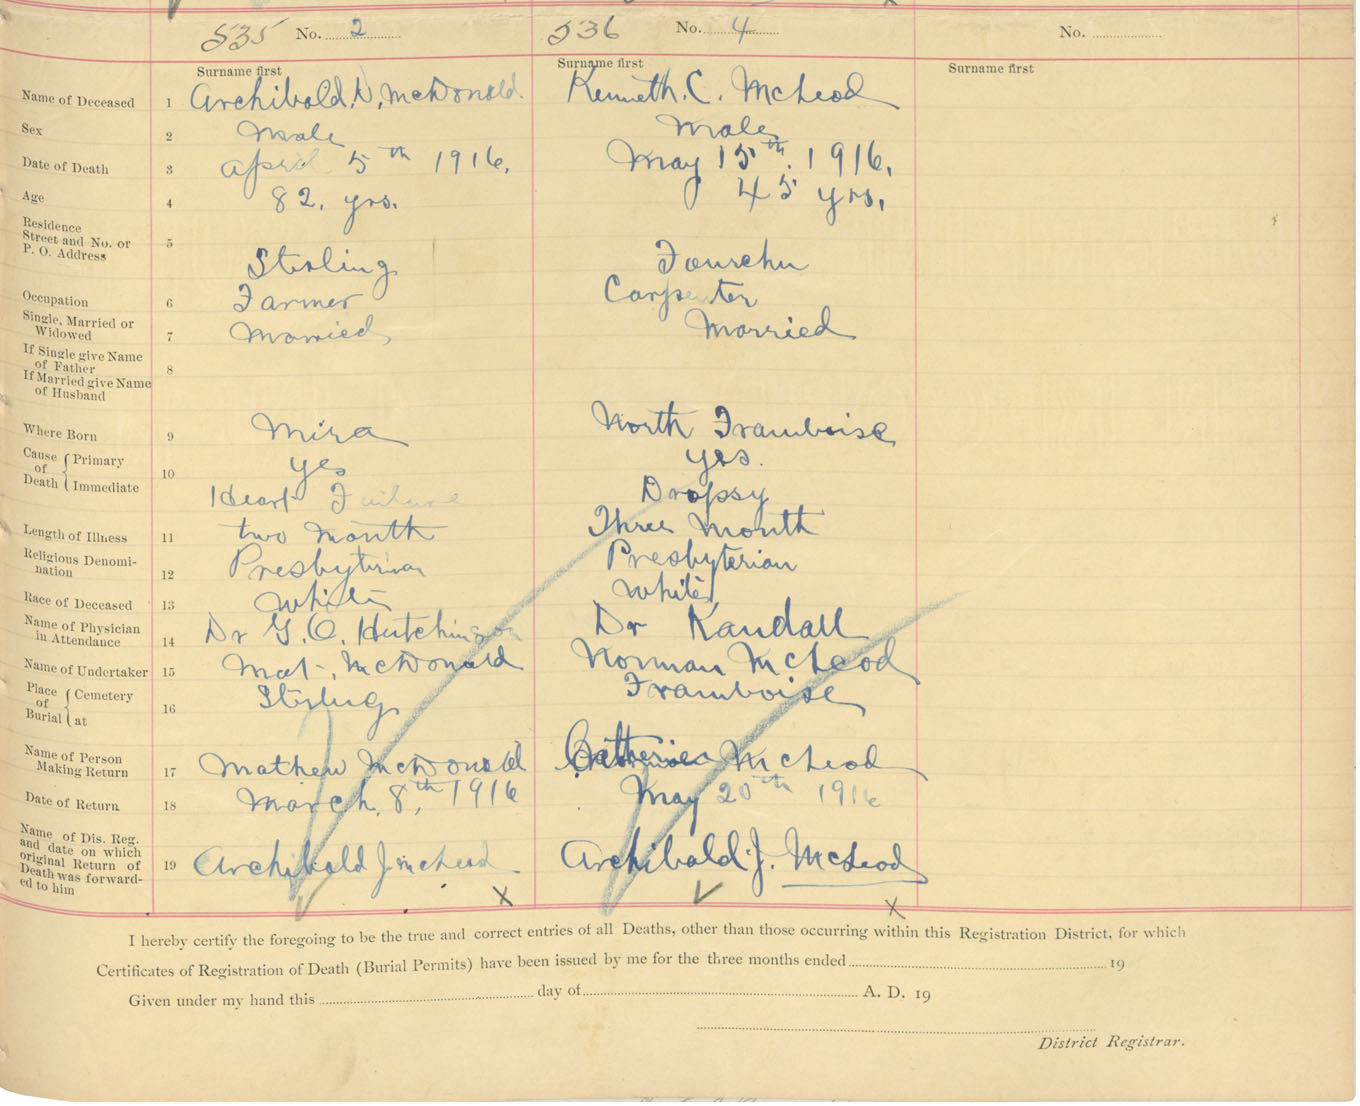 535 No. 2 536 No. 4 No.
Surname first Surname first Surname first
Name of Deceased 1 Archibald. N. McDonald. Kenneth. C. McLeod
Sex 2 Male Male
Date of Death 3 April 5th 1916. May 15th. 1916.
Age 4 82. yrs. 45 yrs.
Residence
Street and No. or
P. O. Address 5 Sterling Fourchu
Occupation 6 Farmer Carpenter
Single, Married or
Widowed 7 Married Married
If Single give Name
of Father 8
If Married give Name
of Husband
Where Born 9 Mira North Framboise
Cause of Death { Primary 10 yes yes.
Immediate Heart Failure Dropsy
Length of Illness 11 two Month Three Month
Religious Denomi-
nation 12 Presbyterian Presbyterian
Race of Deceased 13 White White
Name of Physician
in Attendance 14 Dr G. O. Hutchinson Dr Kandall
Name of Undertaker 15 Mat. McDonald Norman McLeod
Place of Burial { Cemetery
at 16 Sterling Framboise
Name of Person
Making Return 17 Mathew McDonald Catherine McLeod
Date of Return 18 March. 8th, 1916 May 20th 1916
Name of Dis. Reg.
and date on which
original Return of
Death was forward-
ed to him 19 Archibald J. McLeod Archibald. J. McLeod
X X
I hereby certify the foregoing to be the true and correct entries of all Deaths, other than those occurring within this Registration District, for which
Certificates of Registration of Death (Burial Permits) have been issued by me for the three months ended 19
Given under my hand this day of A. D. 19
District Registrar.